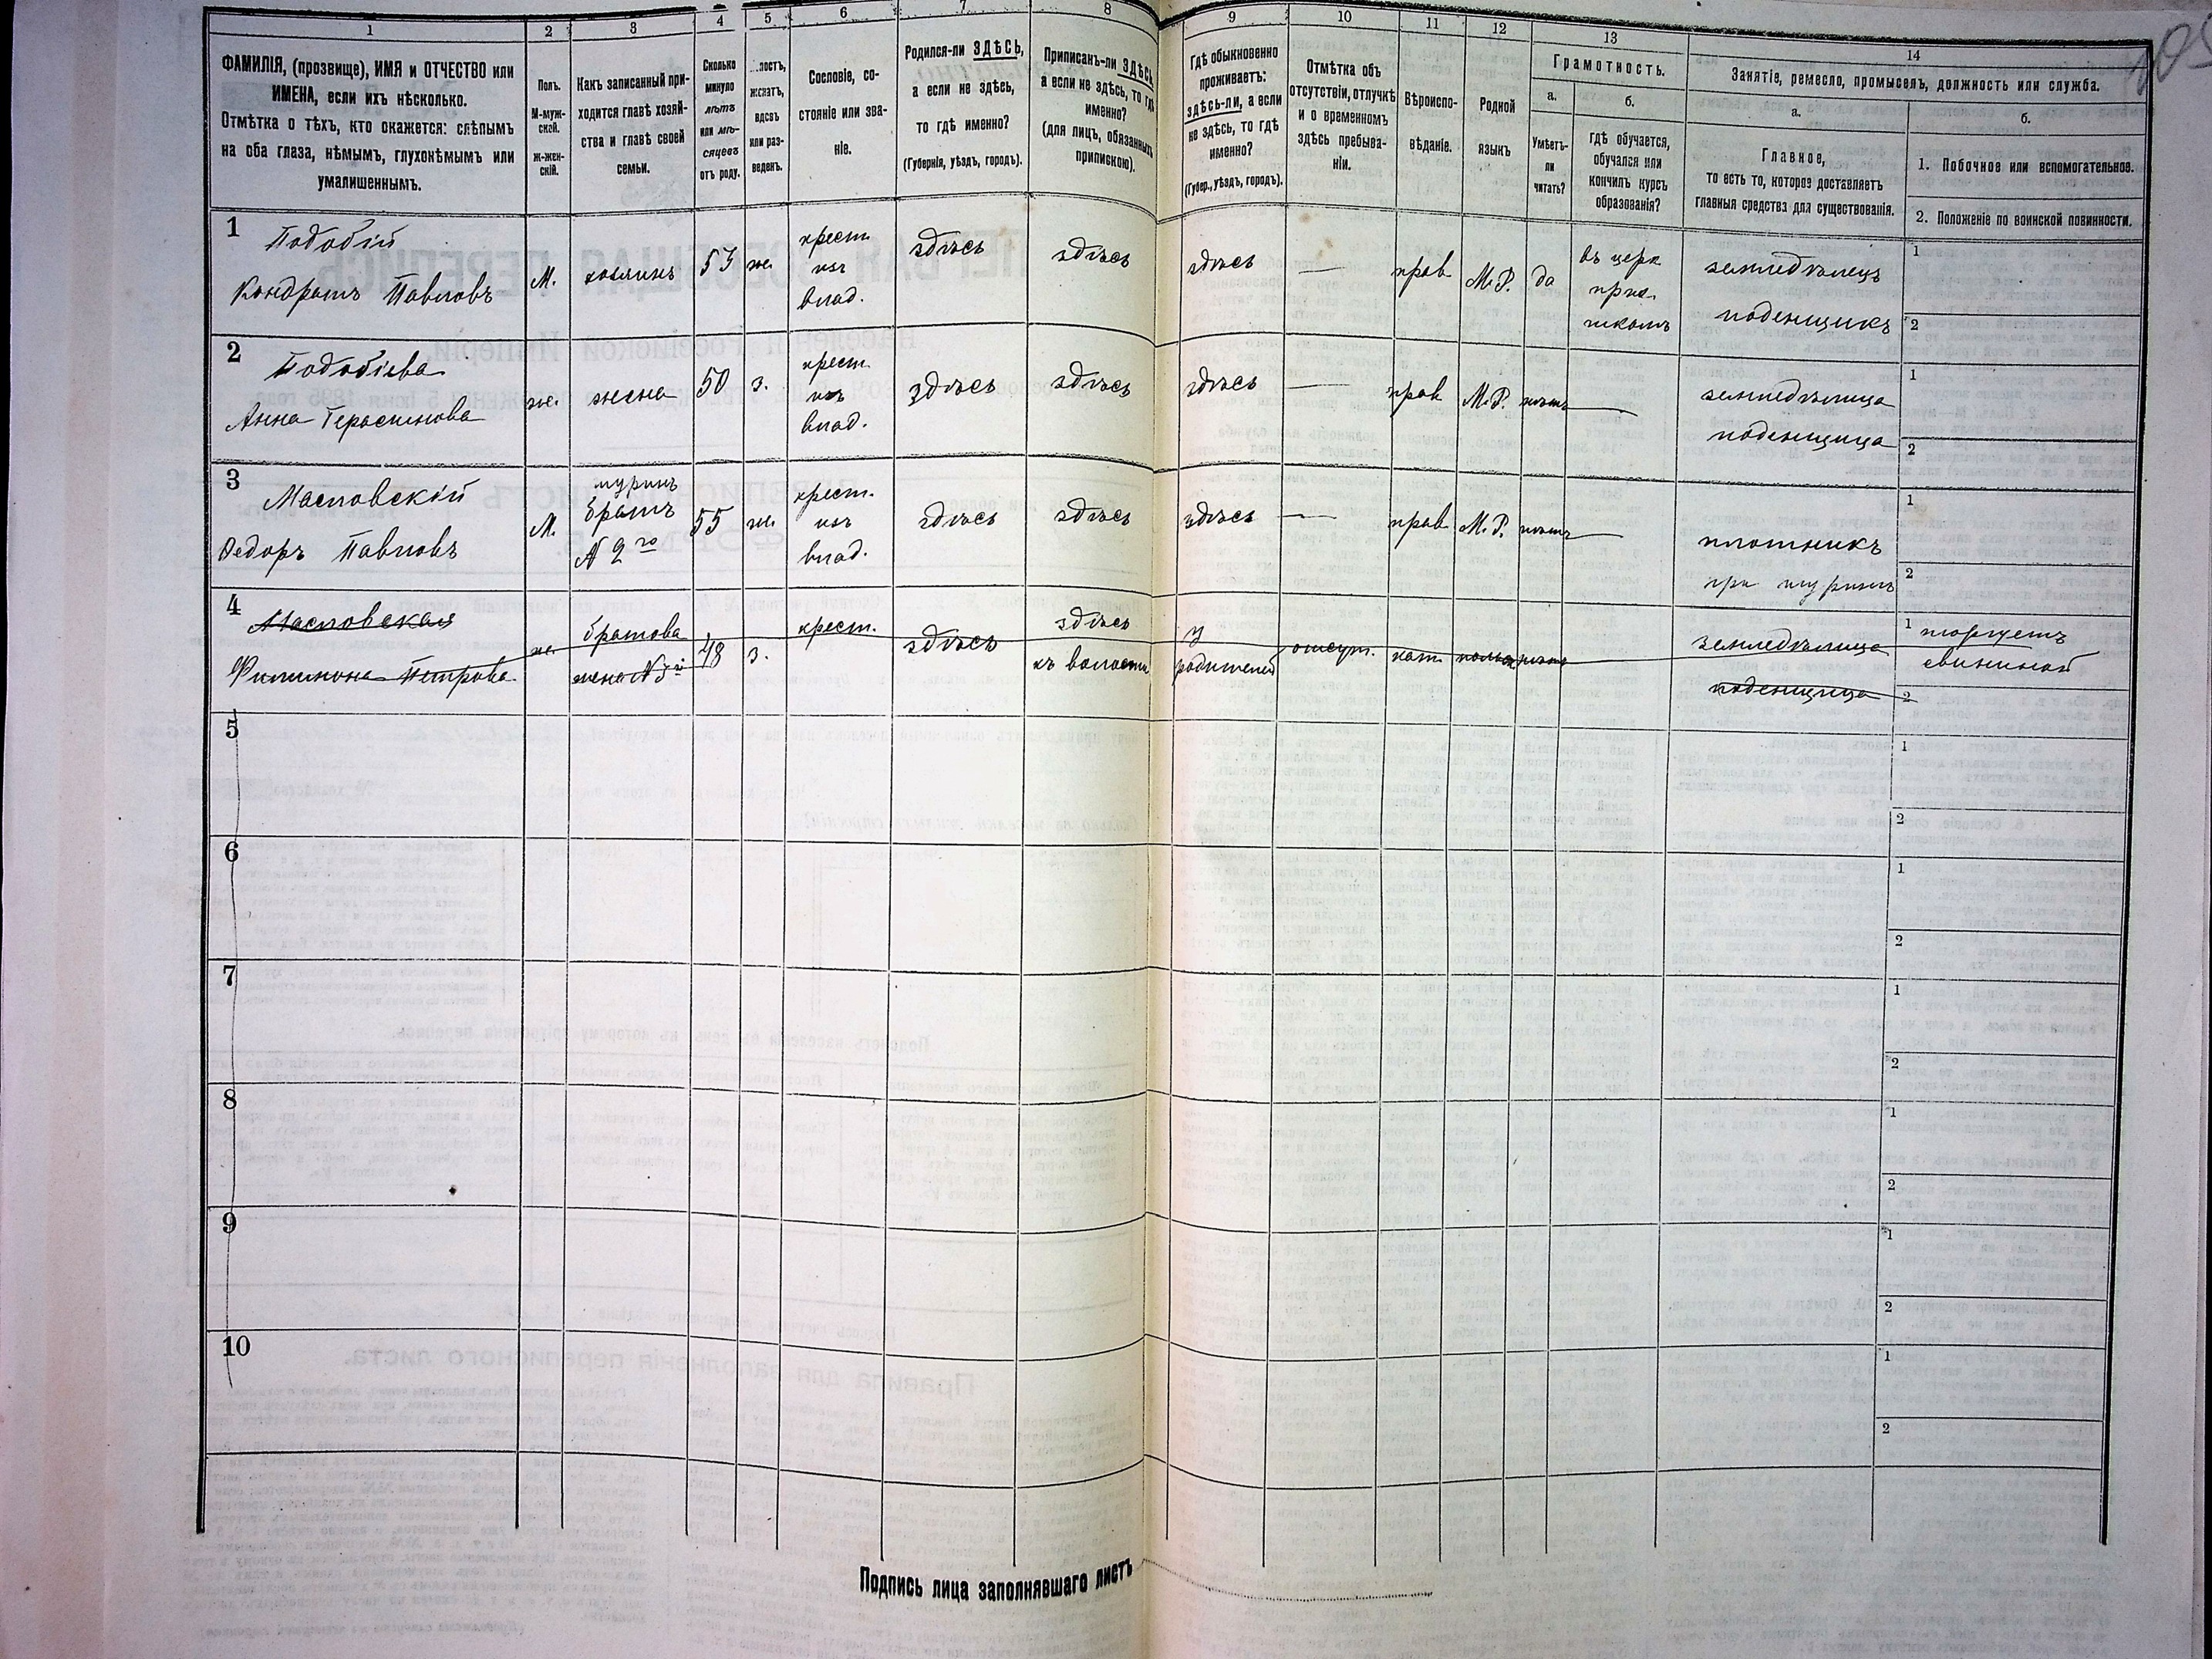 1 2 3 4 5 6 7 8 9 10 11 12 13 14
ФАМИЛІЯ, (прозвище), ИМЯ и ОТЧЕСТВО или
ИМЕНА, если ихъ нѣсколько.
Отмѣтка о тѣхъ, кто окажется: слѣпымъ
на оба глаза, нѣмымъ, глухонѣмымъ или
умалишеннымъ.
Полъ.
М-муж-
ской.
ж-жен-
скій.
Какъ записанный при-
ходится главѣ хозяй-
ства и главѣ своей
семьи.
Сколько
минуло
лѣтъ
или мѣ-
сяцевъ
отъ роду.
лостъ,
женатъ,
вдовъ
или раз-
веденъ.
Сословіе, со-
стояніе или зва-
ніе.
Родился-ли ЗДѢСЬ,
а если не здѣсь,
то гдѣ именно?
(Губернія, уѣздъ, городъ).
Приписанъ-ли ЗДѢСЬ,
а если не здѣсь, то гдѣ
именно?
(для лицъ, обязанныхъ
припискою).
Гдѣ обыкновенно
проживаетъ:
здѣсь-ли, а если
не здѣсь, то гдѣ
именно?
(Губер., уѣздъ, городъ).
Отмѣтка объ
отсутствіи, отлучкѣ
и о временномъ
здѣсь пребыва-
ніи.
Вѣроиспо-
вѣданіе.
Родной
языкъ
Грамотность.
а.
Умѣетъ-
ли
читать?
б.
гдѣ обучается,
обучался или
кончилъ курсъ
образованія?
Занятіе, ремесло, промыселъ, должность или служба.
а.
Главное,
то есть то, которое доставляетъ
главныя средства для существованія.
б.
1. Побочное или вспомогательное.
2. Положеніе по воинской повинности.
1
Подобій
Кондратъ Павловъ
М.
хозяинъ
53
же.
крест.
изъ
влад.
здѣсь
здѣсь
здѣсь
—
прав
М.Р.
да
въ церк
прих.
школѣ
земледѣлецъ
поденщикъ
1
2
2
Подобіева
Анна Герасимова
же.
жена
50
з.
крест.
изъ
влад.
здѣсь
здѣсь
здѣсь
—
прав
М.Р.
нѣтъ
—
земледѣлица
поденщица
1
2
3
Масловскій
Федоръ Павловъ
М.
шуринъ
братъ
N 2го
55
же.
крест.
изъ
влад.
здѣсь
здѣсь
здѣсь
—
прав
М.Р.
нѣтъ
—
плотникъ
при шуринѣ
1
2
4
Масловская
Филимона Петрова
же.
братова
жена N 3й
48
з.
крест.
здѣсь
здѣсь
къ волости
у
родителей
отсут.
кат.
земледѣлица
поденщица
1 торгуетъ
свининой
2
5
1
2
6
1
2
7
1
2
8
1
2
9
1
2
10
1
2
Подпись лица заполнявшаго листъ